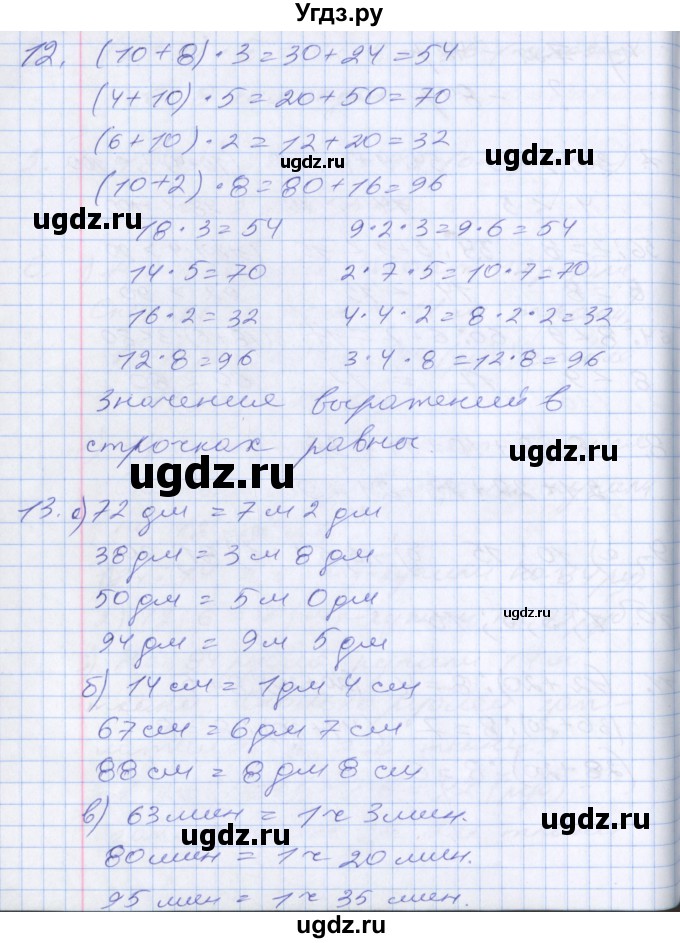 Угдз.ру
12. (10+8)·3=30+24=54
(4+10)·5=20+50=70
(6+10)·2=12+20=32
ugdz.ru ugdz.ru
(10+2)·8=80+16=96
ugdz.ru
18·3=54 9·2·3=9·6=54
14·5=70 2·7·5=10·7=70
16·2=32 4·4·2=8·2·2=32
12·8=96 3·4·8=12·8=96
Значение выражений в
ugdz.ru
строчках равны.
ugdz.ru
13. а) 72 дм = 7 м 2 дм
38 дм = 3 м 8 дм
50 дм = 5 м 0 дм
ugdz.ru
94 дм = 9 м 5 дм
б) 14 см = 1 дм 4 см
67 см = 6 дм 7 см
88 см = 8 дм 8 см
в) 63 мин = 1 ч 3 мин.
ugdz.ru ugdz.ru
80 мин = 1 ч 20 мин.
95 мин = 1 ч 35 мин.
ugdz.ru